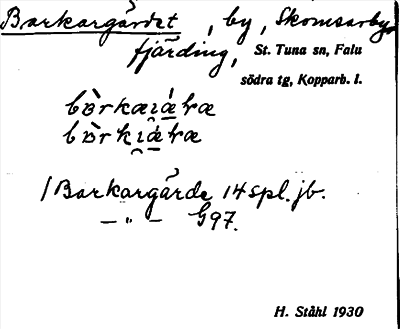 Barkargärdet, by, Skomsarby
fjärding, St. Tuna sn, Falu
södra tg, Kopparb. l.
/ Barkargärde 14 spl. jb.
— " — G97.
H. Ståhl 1930